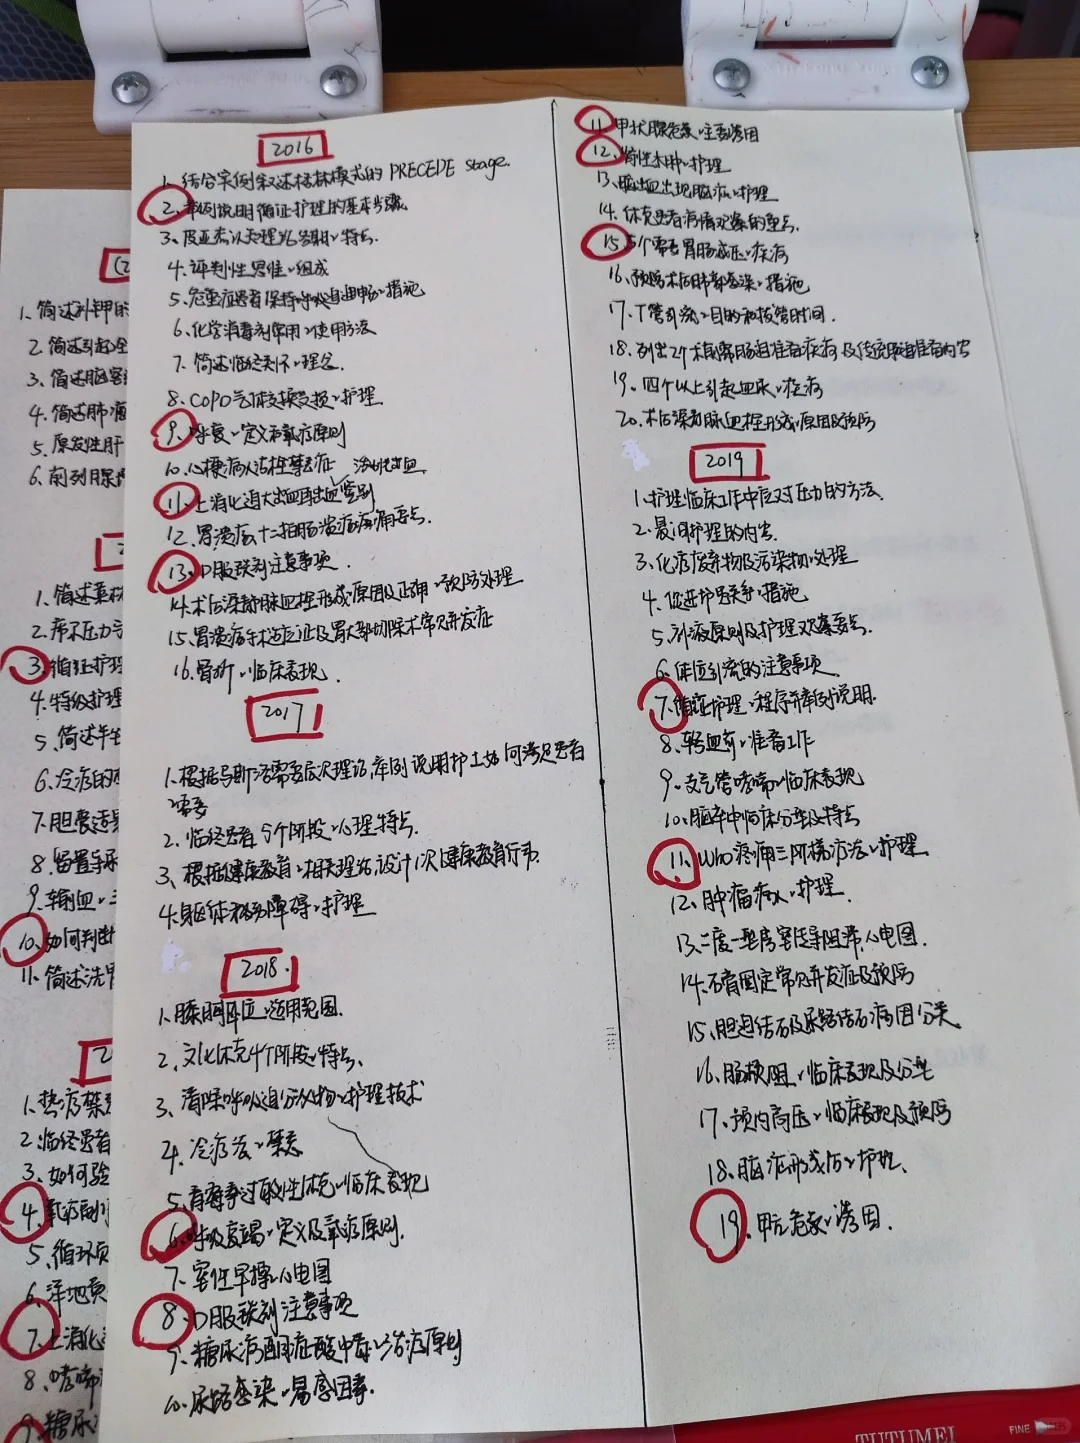 2016
1. 结合案例叙述格林模式的 PRECEDE stage.
2. 举例说明循证护理的基本步骤
3. 皮亚杰认知理论各期、特点.
4. 评判性思维、组成
5. 危重症患者保持呼吸道通畅、措施
6. 化学消毒剂常用、使用方法
7. 简述临终关怀、理念.
8. COPD气体交换受损、护理
9. 呼衰、定义和氧疗原则
10. 心梗病人溶栓禁忌症
活动性出血
11. 上消化道大出血再出血鉴别
12. 胃溃疡、十二指肠溃疡疼痛要点.
13. 口服铁剂注意事项.
14. 术后深静脉血栓形成原因及正确、预防处理
15. 胃溃疡手术适应证及胃大部切除术常见并发症
16. 骨折、临床表现.
2017
1. 根据马斯洛需要层次理论,举例说明护士如何满足患者
、需要
2. 临终患者5个阶段、心理特点.
3. 根据健康教育、相关理论,设计1次健康教育行动.
4. 躯体移动障碍、护理
2018.
1. 膝胸卧位、适用范围.
2. 文化休克4个阶段、特点.
3. 清除呼吸道分泌物、护理技术
4. 冷疗法、禁忌
5. 青霉素过敏性休克、临床表现
6. 呼吸衰竭、定义及氧疗原则.
7. 室性早搏心电图
8. 口服铁剂注意事项
9. 糖尿病酮症酸中毒、治疗原则
10. 尿路感染、易感因素.
11. 甲状腺危象、主要诱因
12. 肾性水肿、护理
13. 脑出血出现脑疝、护理
14. 休克患者病情观察的重点.
15. 5个需要胃肠减压、疾病
16. 预防术后肺部感染、措施
17. T管引流、目的和拔管时间.
18. 列出2个术前需肠道准备疾病及传统肠道准备内容
19. 四个以上引起血尿、疾病
20. 术后深静脉血栓形成原因及预防
2019
1. 护理临床工作中应对压力的方法.
2. 晨间护理的内容.
3. 化疗废弃物及污染物、处理
4. 促进护患关系、措施
5. 补液原则及护理观察要点.
6. 体位引流的注意事项.
7. 循证护理、程序并举例说明.
8. 输血前、准备工作
9. 支气管哮喘、临床表现
10. 脑卒中临床分型及特点
11. WHO疼痛三阶梯疗法、护理
12. 肿瘤病人、护理.
13. 二度一型房室传导阻滞心电图.
14. 石膏固定常见并发症及预防
15. 胆道结石及尿路结石病因分类
16. 肠梗阻、临床表现及分型
17. 颅内高压、临床表现及预防
18. 脑疝形成后、护理.
19. 甲亢危象、诱因.
1. 简述补钾的
2. 简述引起全
3. 简述脑室
4. 简述肺癌
5. 原发性肝
6. 前列腺
1. 简述
2. 席尔压力学
3. 循证护理
4. 特级护理
5. 简述
6. 冷疗的
7. 胆囊造
8. 留置导尿
9. 输血、三
10. 如何判断
11. 简述洗胃
1. 热疗禁忌
2. 临终患者
3. 如何验
4. 氧疗副
5. 循环负
6. 洋地黄
7. 上消化道
8. 哮喘
9. 糖尿
TUTUMEI
FINE